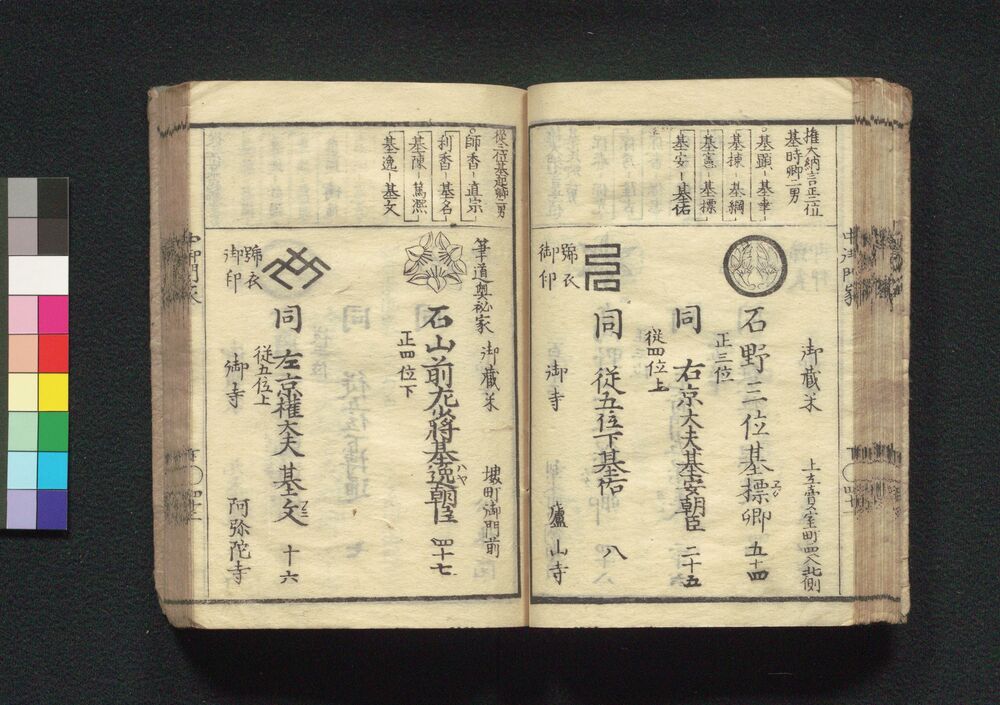 中御門家
権大納言正二位
基時卿二男
基顕－基幸
基棟－基綱
基憲－基標
基安－基佑
御蔵米
上立賣室町西入北側
石野三位基標卿 五十四
正三位
同 右京大夫基安朝臣 二十五
従四位上
同 従五位下基佑 八
號衣
御印
御寺
廬山寺
従二位基起卿二男
師香－直宗
利香－基名
基陳－篤凞
基逸－基文
筆道奥祕家 御蔵米
堺町御門前
石山前左少将基逸朝臣 四十七
ハヤ
正四位下
同 左京権大夫基文 十六
従五位上
號衣
御印
御寺
阿弥陀寺
中御門家